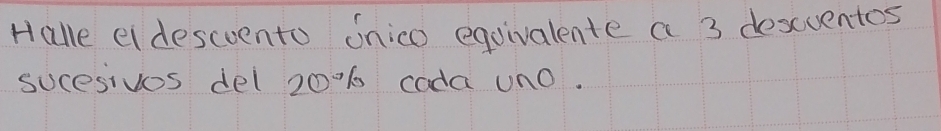 Halle el descuento único equivalente a 3 descuentos
sucesivos del 20% cada uno.